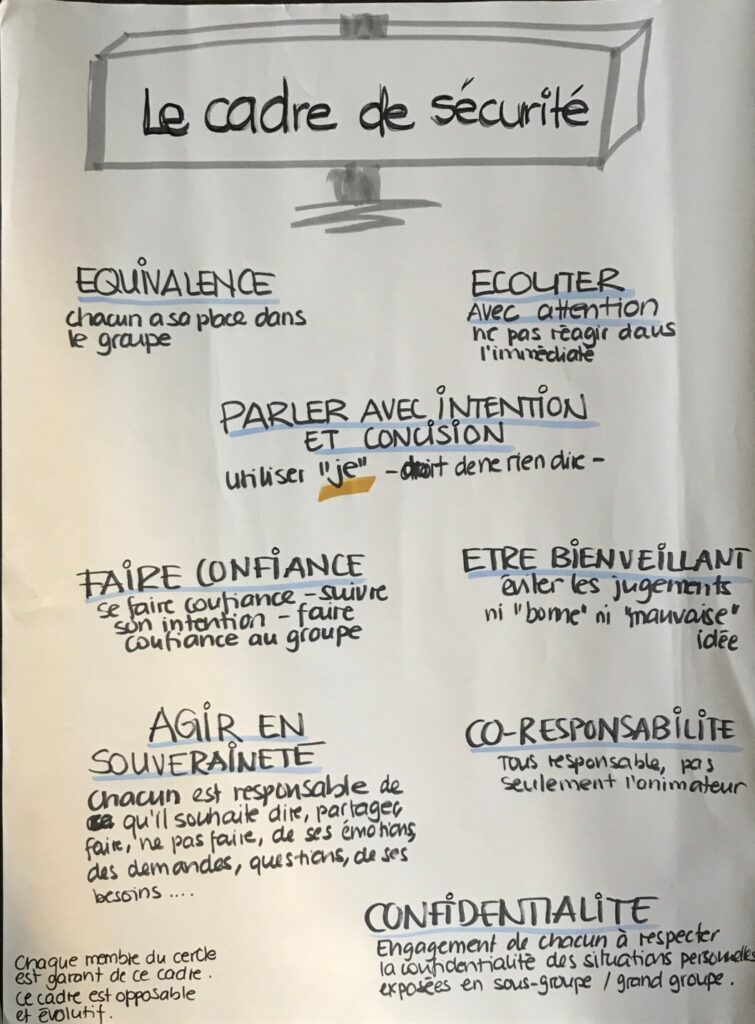 Le cadre de sécurité
EQUIVALENCE
chacun a sa place dans
le groupe
ECOUTER
Avec attention
ne pas réagir dans
l'immédiaté
PARLER AVEC INTENTION
ET CONCISION
utiliser "je" - droit de ne rien dire -
FAIRE CONFIANCE
se faire confiance - suivre
son intention - faire
confiance au groupe
ETRE BIENVEILLANT
éviter les jugements
ni "bonne" ni "mauvaise"
idée
AGIR EN
SOUVERAINETE
Chacun est responsable de
ce qu'il souhaite dire, partager,
faire, ne pas faire, de ses émotions,
des demandes, questions, de ses
besoins ....
CO-RESPONSABILITE
Tous responsable, pas
seulement l'animateur
CONFIDENTIALITE
Engagement de chacun à respecter
la confidentialité des situations personnelles
exposées en sous-groupe / grand groupe.
Chaque membre du cercle
est garant de ce cadre.
Ce cadre est opposable
et évolutif.